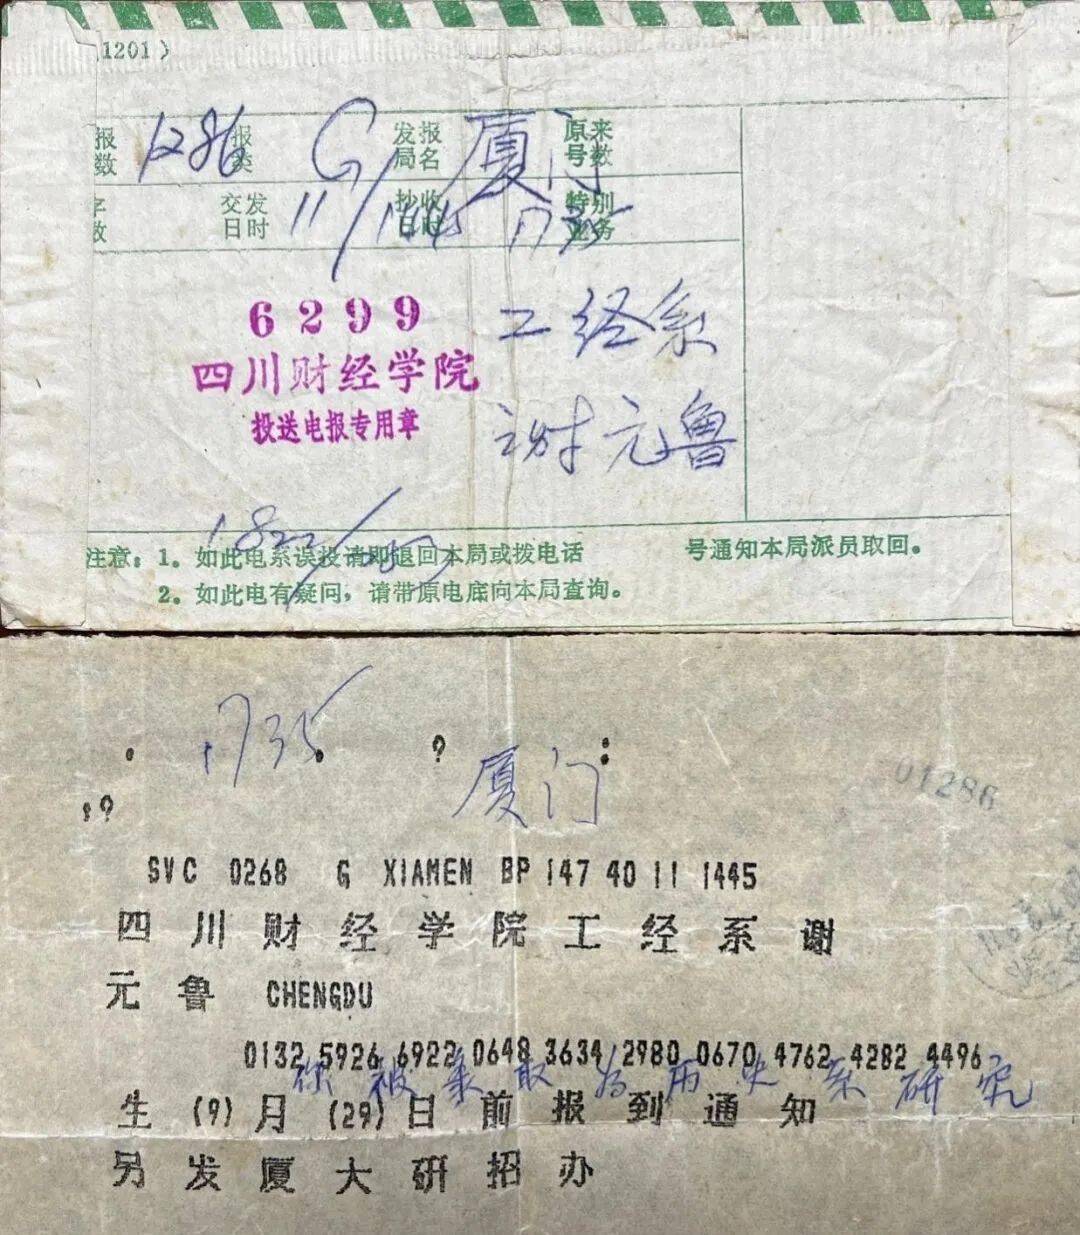 1201）
报数 1286 报类 G 发报局名 厦门 原来号数
字数 交发日时 11/1445 抄收日时 1735 特别业务
6299
四川财经学院
投送电报专用章
工经系
谢元鲁
1822/
注意：1。如此电系误投请即退回本局或拨电话 号通知本局派员取回。
2。如此电有疑问，请带原电底向本局查询。
1735 ? :
厦门
01286
:?
SVC 0268 G XIAMEN BP 147 40 11 1445
四川财经学院工经系谢
元鲁 CHENGDU
0132 5926 6922 0648 3634 2980 0670 4762 4282 4496
你 被 录 取 为 历 史 系 研 究
生 (9) 月 (29) 日前报到通知
另发厦大研招办